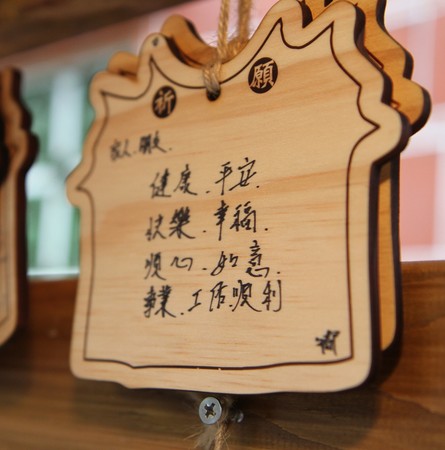 祈願
家人.朋友.
健康.平安.
快樂.幸福.
順心.如意.
事業.工作順利